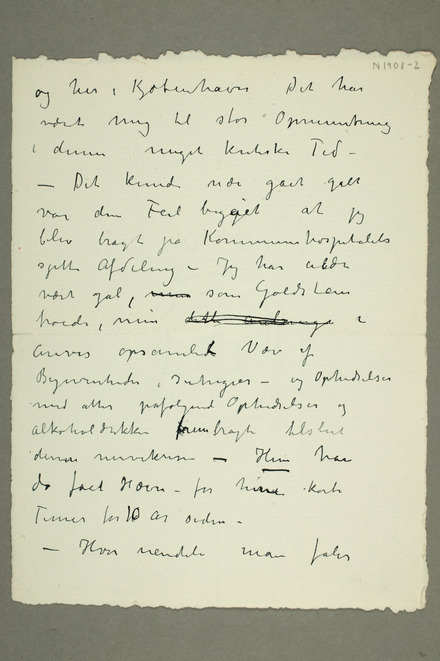 N 1908-2
og her i Kjøbenhavn Det har
vært mig til stor Opmuntring
i denne meget kritiske Tid –
– Det kunde når gået galt
var den Feil begået at jeg
blev bragt på Kommunehospitalets
sjette Afdeling – Jeg har aldri
vært gal, som Goldstein
troede, min i
årevis opsamled Væv af
Begivenheder, Intriger – og Ophidselser
med atter påfølgend Ophidselser og
alkoholdrikken frembragte tilslut
denne nervekrise – Hun har
da fået Hævn – for hine korte
Timer for 10 År siden –
– Hvor uendeli man føler